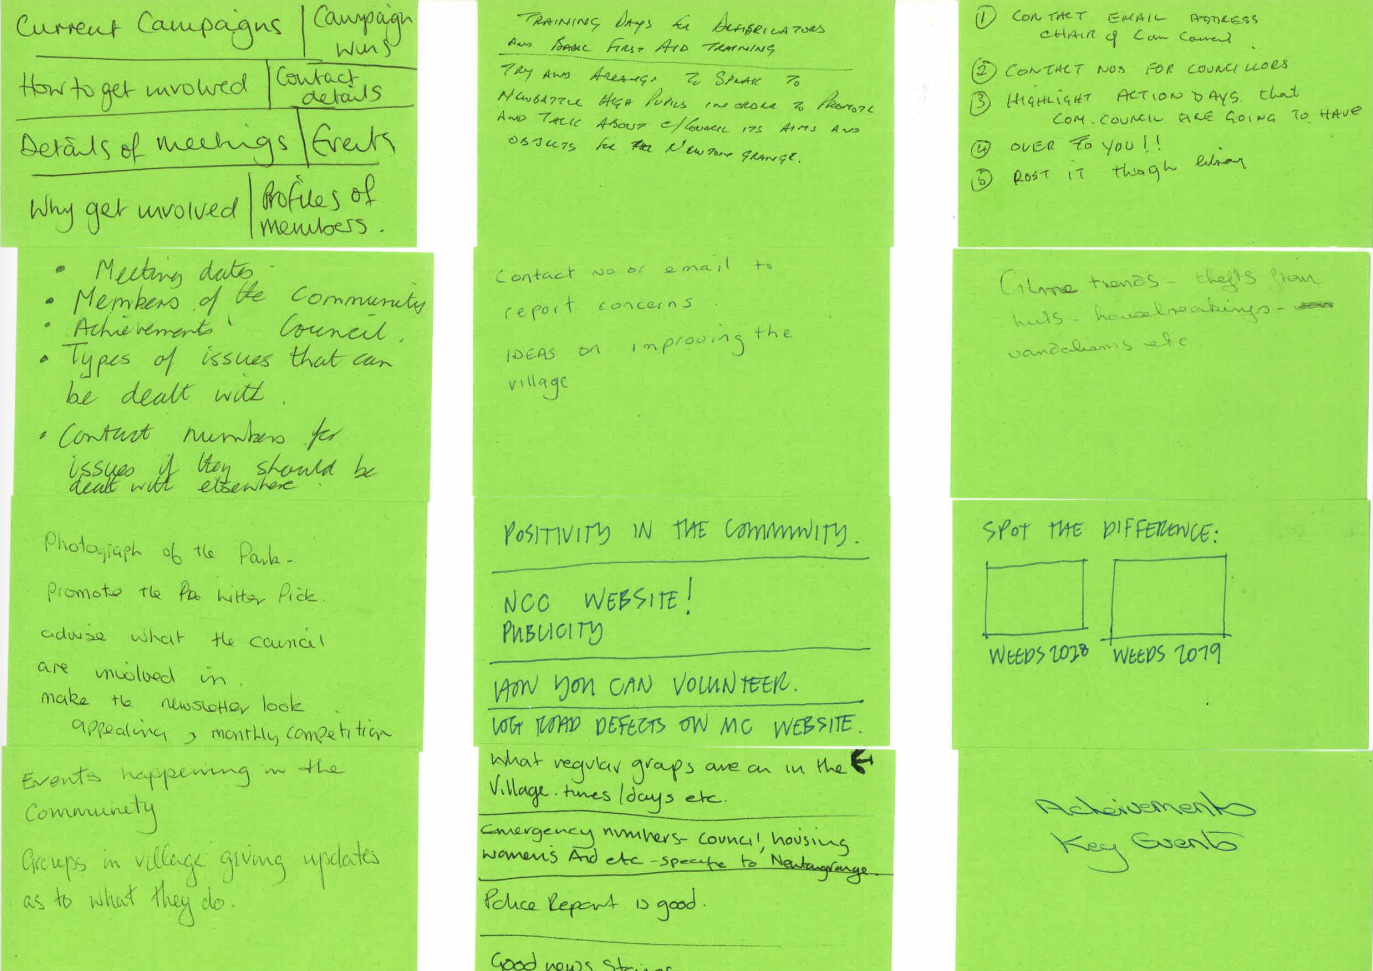 Current Campaigns | Campaign wins
How to get involved | Contact details
Details of meetings | Events
Why get involved | Profiles of members.
TRAINING DAYS for DEFIBRILATORS
AND BASIC FIRST AID TRAINING
TRY AND ARRANGE TO SPEAK TO
NEWBATTLE HIGH PUPILS IN ORDER TO PROMOTE
AND TALK ABOUT C/COUNCIL ITS AIMS AND
OBJECTS for NEWTONGRANGE.
① CONTACT EMAIL ADDRESS
CHAIR of Com Council.
② CONTACT NOS FOR COUNCILLORS
③ HIGHLIGHT ACTION DAYS that
COM. COUNCIL ARE GOING TO HAVE
④ OVER TO YOU!!
⑤ POST IT though library
• Meeting dates.
• Members of the Community
• Achievements Council.
• Types of issues that can
be dealt with.
• Contact numbers for
issues if they should be
dealt with elsewhere.
Contact no or email to
report concerns.
IDEAS on improving the
village
Crime trends - thefts from
huts - housebreakings -
vandalisms etc
Photograph of the Park -
promote the Litter Pick.
advise what the council
are involved in.
make the newsletter look
appealing, monthly competition
POSITIVITY IN THE COMMUNITY.
NCC WEBSITE!
PUBLICITY
HOW YOU CAN VOLUNTEER.
LOG ROAD DEFECTS ON MC WEBSITE.
SPOT THE DIFFERENCE:
WEEDS 2018 WEEDS 2019
Events happening in the
Community
Groups in village giving updates
as to what they do.
What regular groups are on in the
Village. times/days etc.
Emergency numbers - council, housing
women's Aid etc - specific to Newtongrange.
Police Report is good.
Good news Stories
Acheivements
Key Events